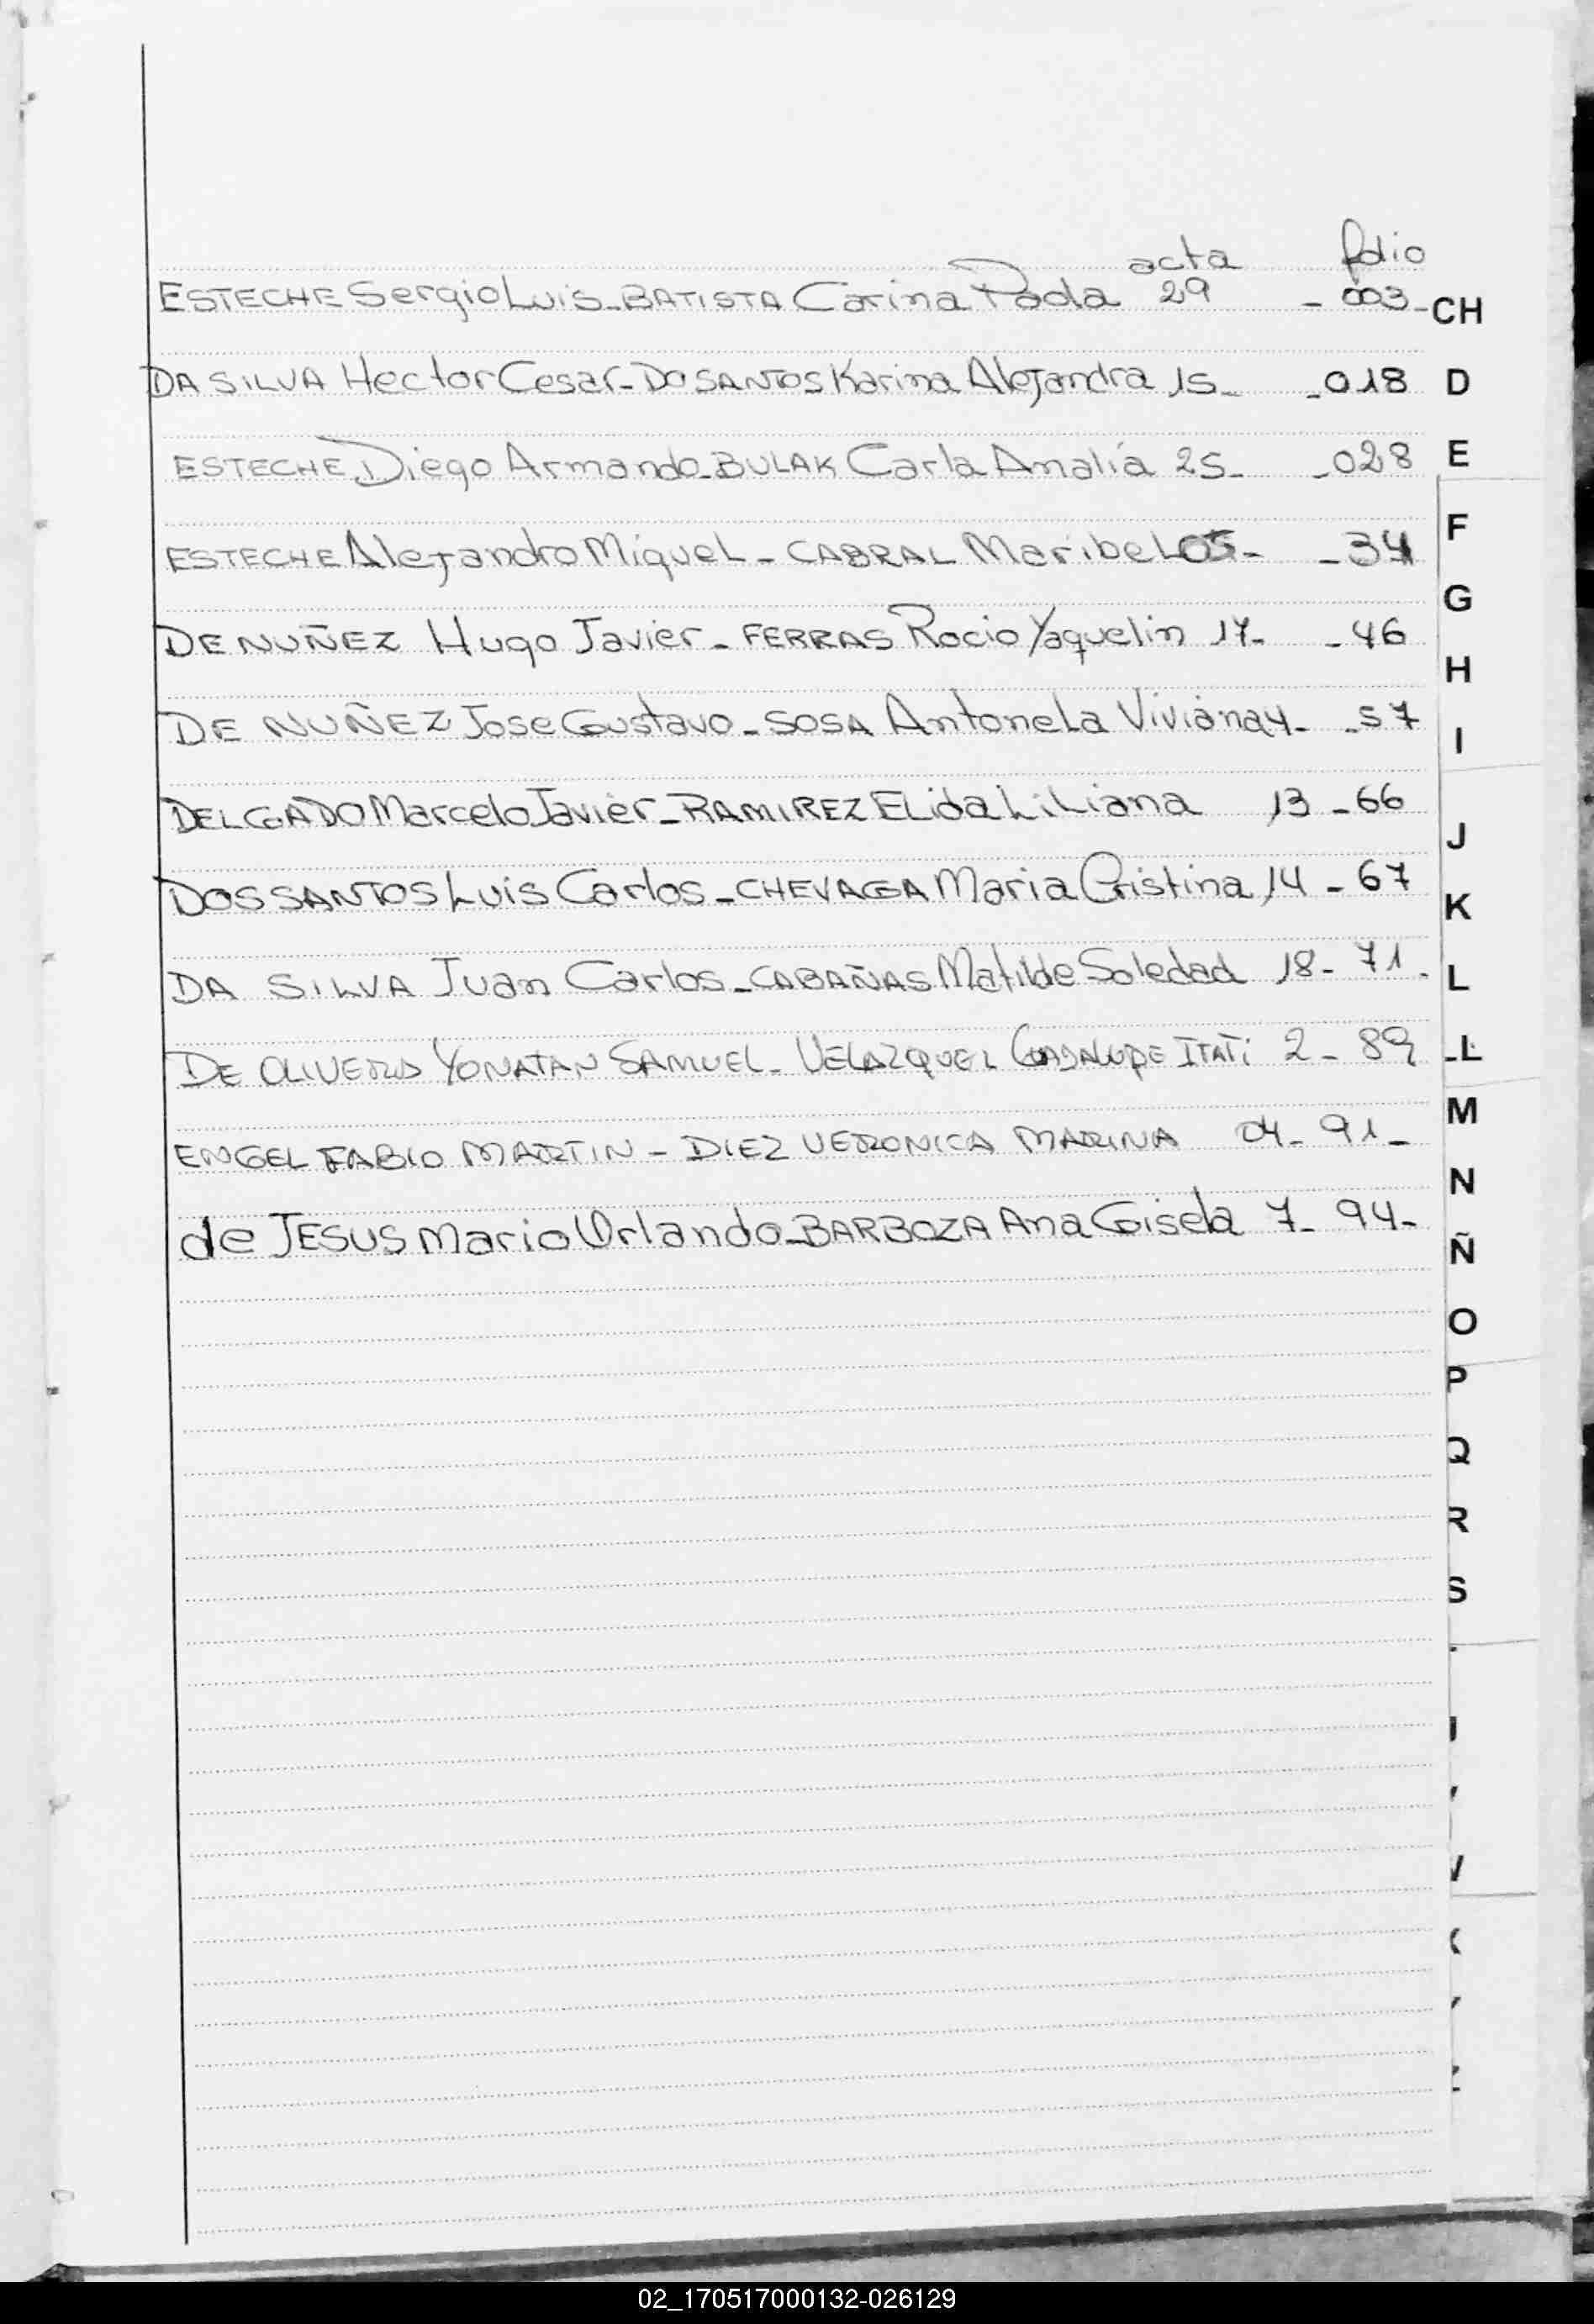 acta folio
ESTECHE Sergio Luis - BATISTA Carina Paola 29 - 003 - CH
DA SILVA Hector Cesar - DO SANTOS Karina Alejandra 15 - - 018 D
ESTECHE Diego Armando - BULAK Carla Amalia 25 - - 028 E
F
ESTECHE Alejandro Miguel - CABRAL Maribel 05 - - 34
G
DE NUÑEZ Hugo Javier - FERRAS Rocio Yaquelin 17 - - 46
H
DE NUÑEZ Jose Gustavo - SOSA Antonela Viviana 4 - - 57
I
DELGADO Marcelo Javier - RAMIREZ ELida Liliana 13 - 66
J
DOS SANTOS Luis Carlos - CHEVAGA Maria Cristina 14 - 67
K
DA SILVA Juan Carlos - CABAÑAS Matilde Soledad 18 - 71 - L
DE OLIVERA YONATAN SAMUEL - VELAZQUEZ GUADALUPE ITATI 2 - 89 - LL
M
ENGEL FABIO MARTIN - DIEZ VERONICA MARINA 04 - 91 -
N
de JESUS Mario Orlando - BARBOZA Ana Gisela 7 - 94 -
Ñ
O
P
Q
R
S
K
Z
02_170517000132-026129